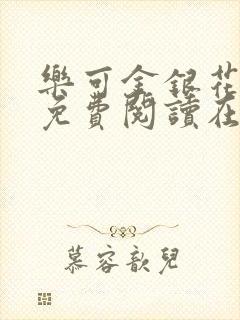 樂可金銀花
免費閱讀在
慕容歆兒